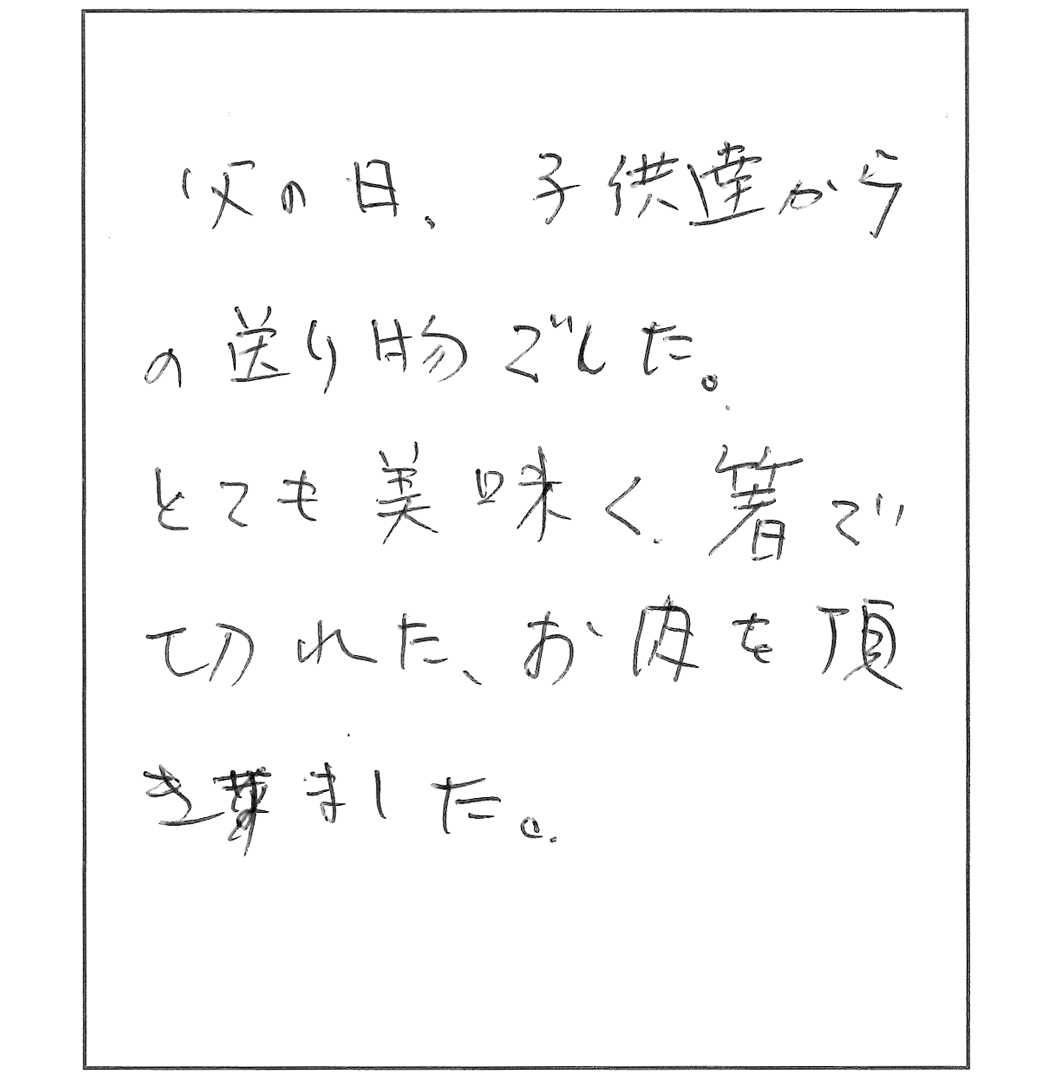 父の日、子供達から
の送り物でした。
とても美味く、箸で
切れた、お肉を頂
きました。